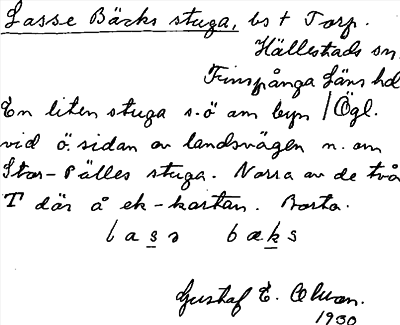 Lasse Bäcks stuga, bs t Torp.
Hällestads sn.
Finspånga läns hd
En liten stuga s.ö om byn / Ögl.
vid ö. sidan av landsvägen n. om
Stor-Pälles stuga. Norra av de två
T där å ek-kartan. Borta.
lasə bæks
Gustaf E.
1930